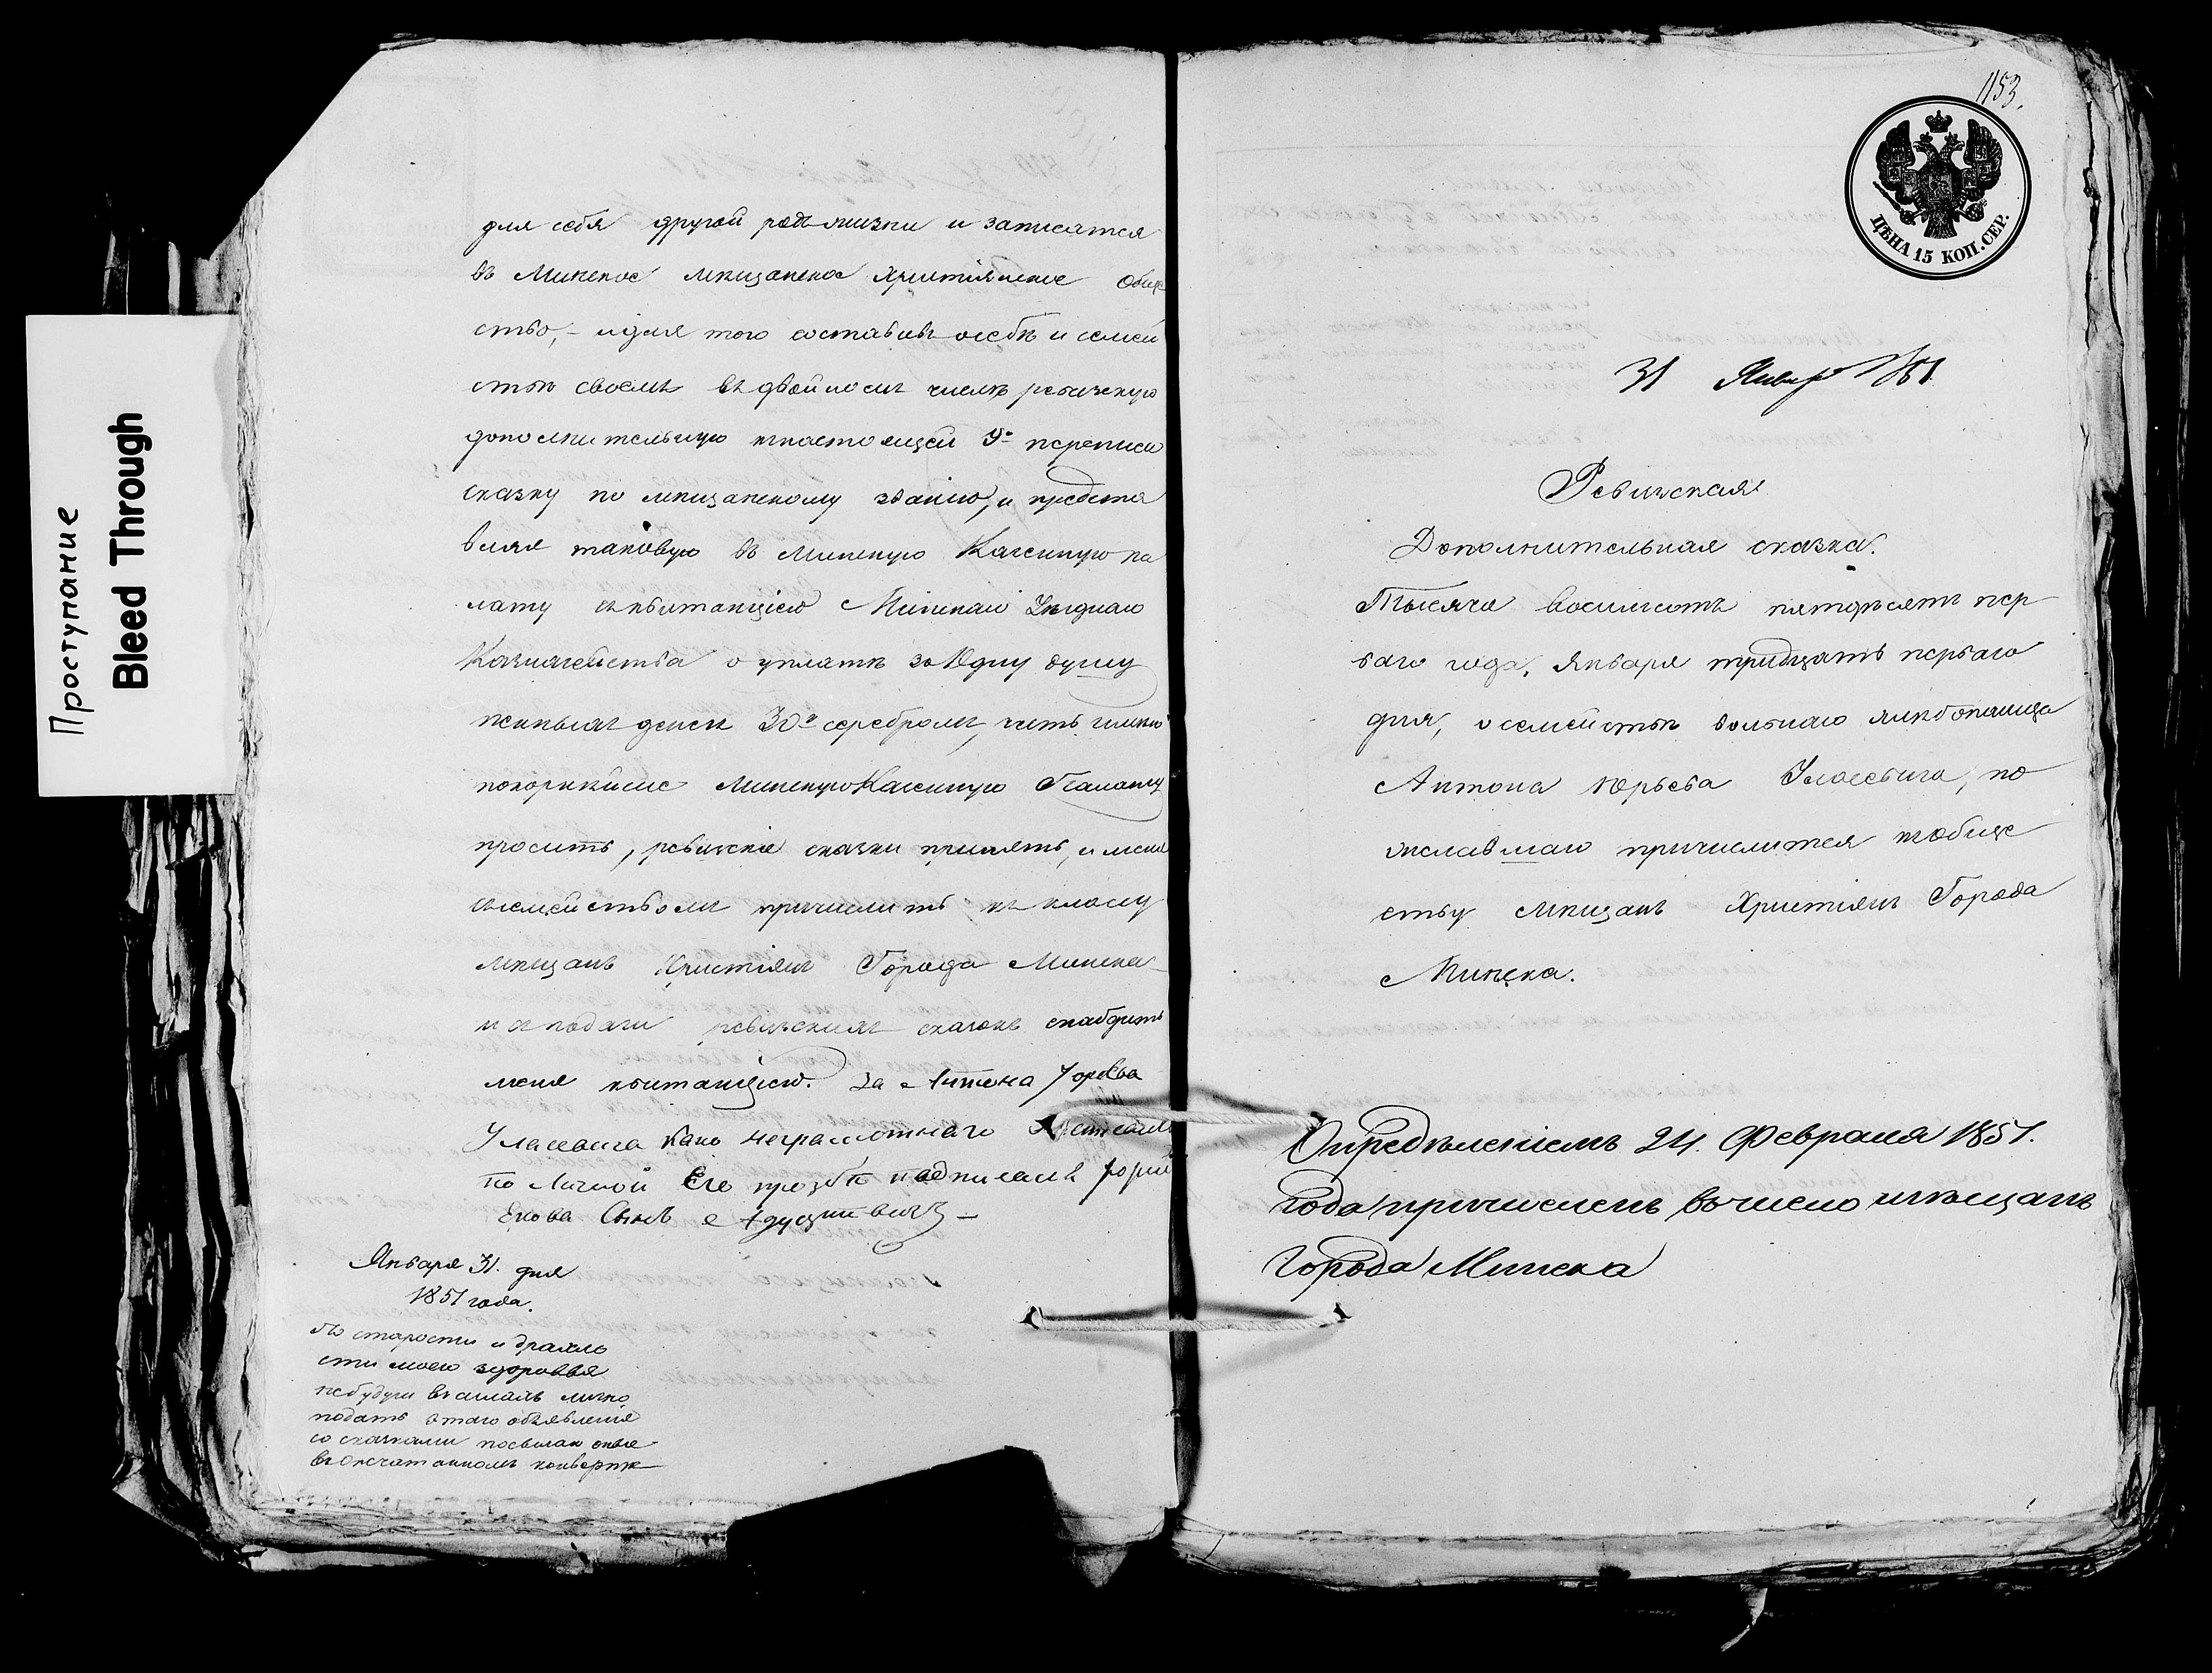 Проступание
Bleed Through
для себя другой родъ жизни и записатся
въ Минское мѣщанское христіянское обще
ство, – и для того составивъ о себѣ и семей
ствѣ своемъ въ двойномъ числѣ ревизскую
дополнительную къ настоящей 9й переписи
сказку по мѣщанскому званію, и предста
вляя таковую въ Минскую Казенную па
лату съ квитанціею Минскаго Уѣзднаго
Казначейства о уплатѣ за одну душу
денегъ 30 к серебромъ, честь имѣю
покорнѣйше Минскую Казенную Палату
просить, ревизскіе сказки принять, и меня
съ семействомъ причислить къ классу
мѣщанъ Христіянъ Города Минска
и о подачи ревизскихъ сказокъ снабдить
меня квитанціею. За Антона Юрева
Уласевича како неграмотнаго
по Личной Его прозбѣ подписалъ Юрий
Якова Сынъ
Января 31. дня
1851 года.
По старости и дряхло
сти моего здоровья
небудучи въ силахъ лично
подать этаго объявленія
со сказками посылаю оные
въ опечатанномъ конвертѣ
1153.
ЦѢНА 15 КОП. СЕР.
31 Января 1851
Ревизская
Дополнительная сказка.
Тысяча восемьсотъ пятдесятъ пер
ваго года, Января тридцать перваго
дня, о семействѣ вольнаго хлѣбопашца
Антона Юрьева Уласевича, по
желавшаго причислится къ обще
ству мѣщанъ Христіянъ Города
Минска.
Опредѣленіемъ 24. Февраля 1851.
года причисленъ въ число мѣщанъ
города Минска